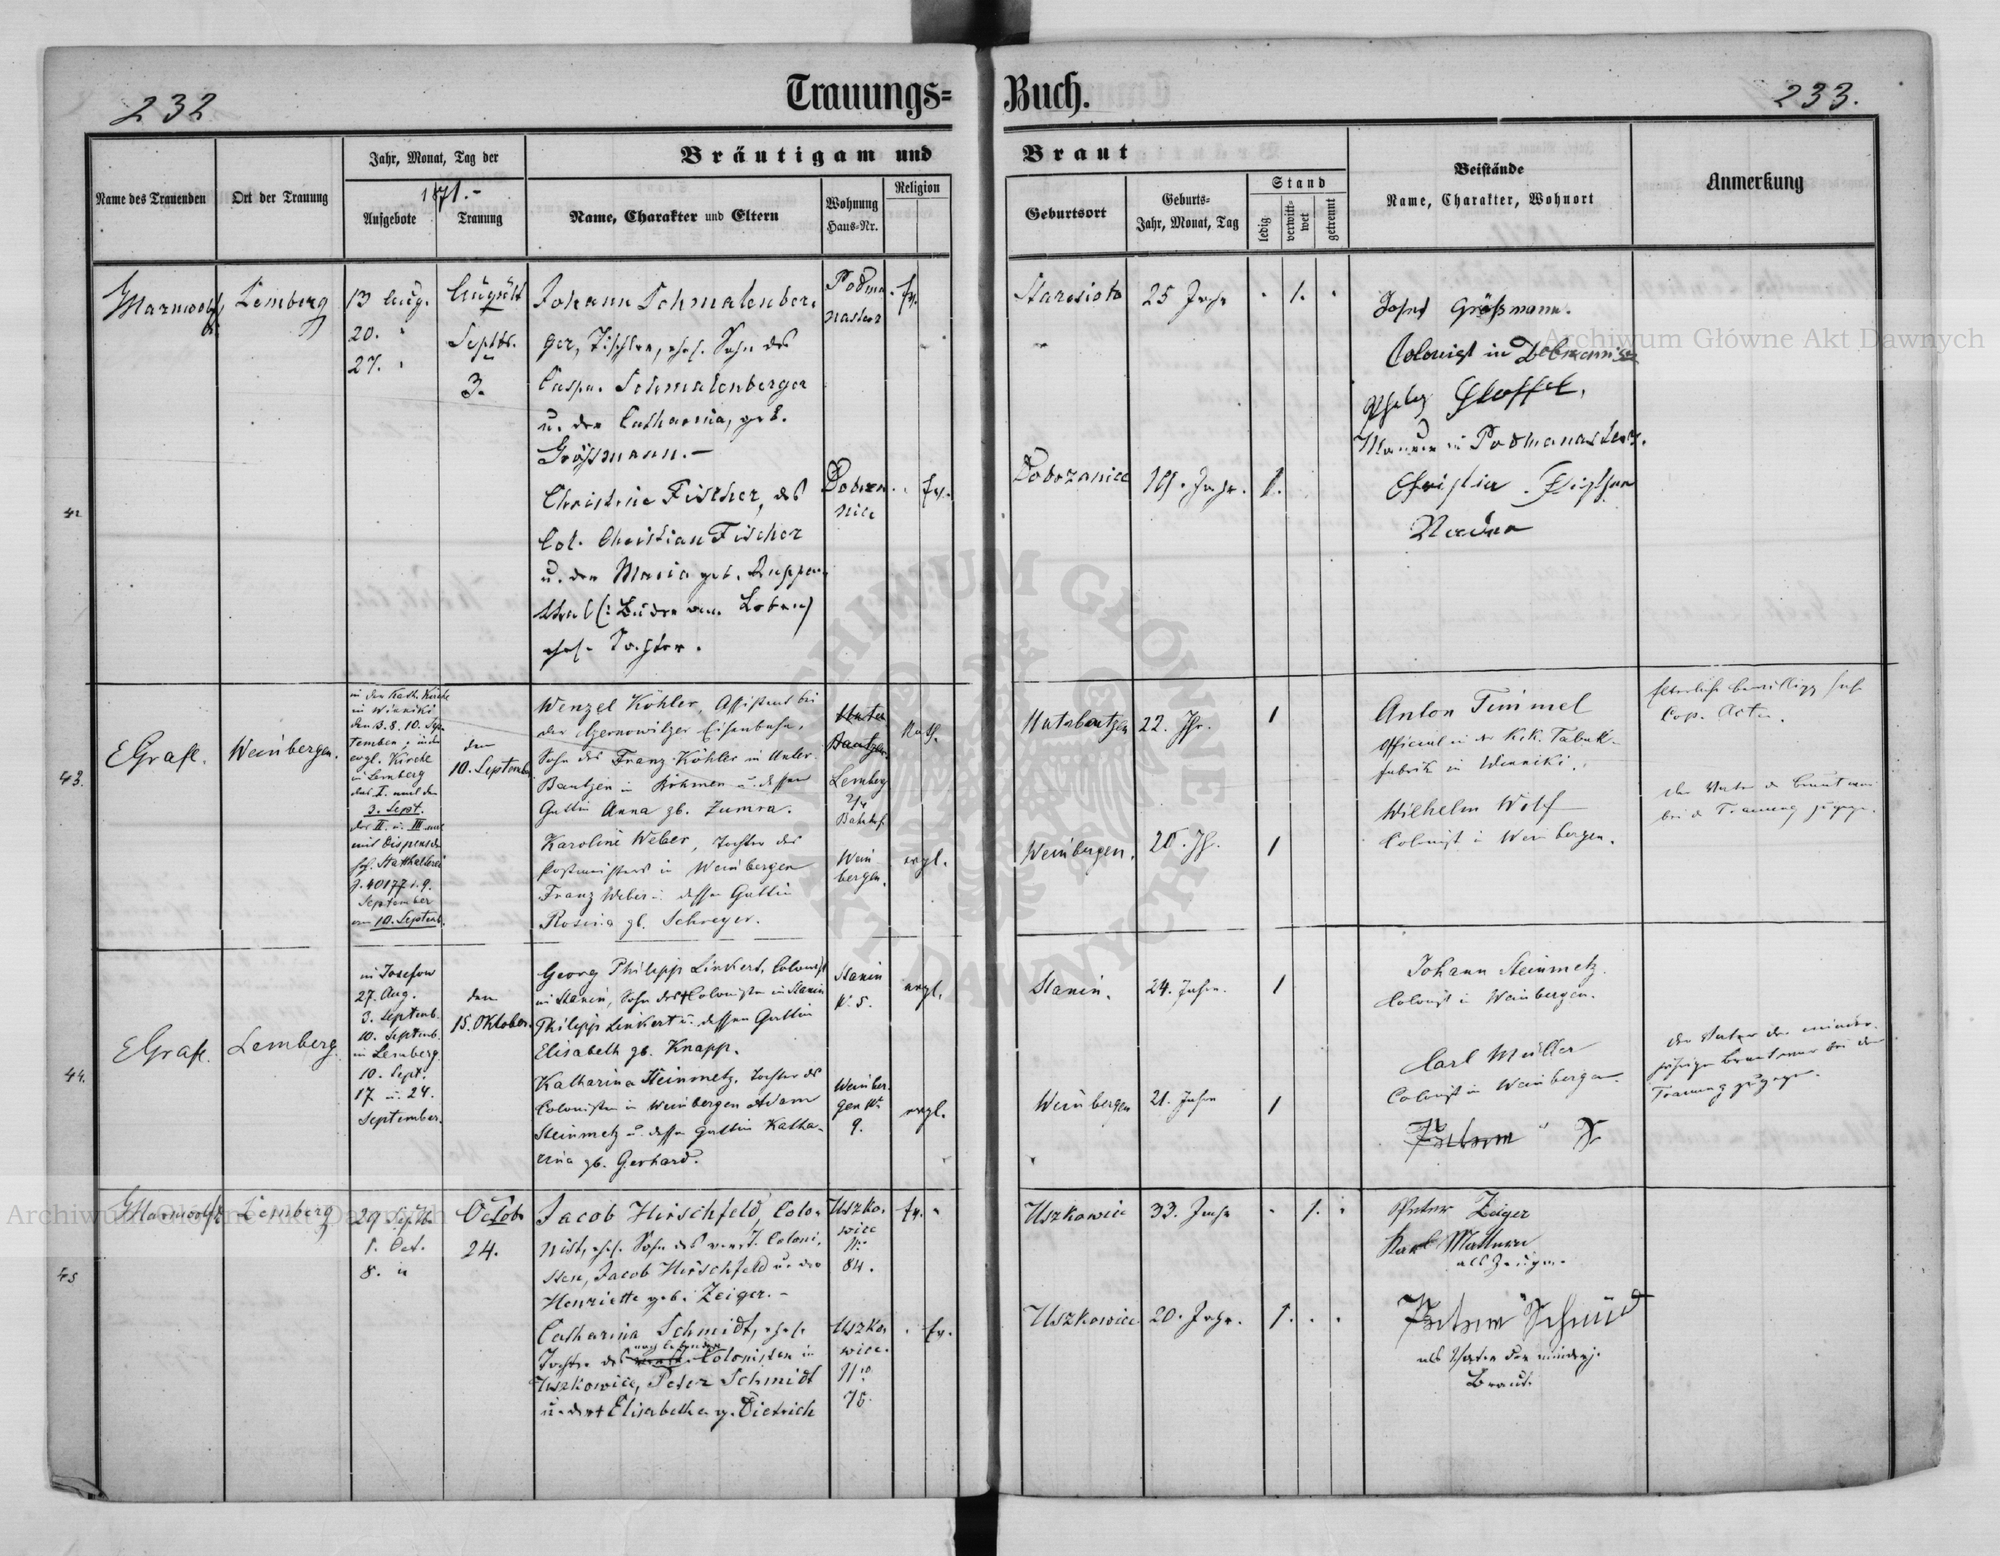 232
Trauungs=Buch.
233.
Name des Trauenden
Ort der Trauung
Jahr, Monat, Tag der
1871.-
Aufgebote
Trauung
Bräutigam und Braut
Name, Charakter und Eltern
Wohnung
Haus-Nr.
Religion
Geburtsort
Geburts-
Jahr, Monat, Tag
Stand
ledig
verwitt-
wet
getrennt
Beistände
Name, Charakter, Wohnort
Anmerkung
42
Lemberg
13 Aug.
20. "
27. "
August
Septbr.
3.
Johann Schmalenber-
ger, Tischler, ehel. Sohn des
Caspar Schmalenberger
u. der Catharina, geb.
Grössmann. -
Christine Fischer, des
Col. Christian Fischer
u. der Maria geb. Ruppen-
thal
ehel. Tochter.
Podma
nastier
Dobrza
nice
ev.
ev.
25 Jahr
Dobrzanice
19. Jahr.
1.
1.
Josef Größmann.
Colonist in
Stoffel,
Maurer in Podmanasterz.
Christian Fischer
43.
E Grafl.
Weinbergen.
in der Kath. Kirche
in Winniki
den 3. 8. 10. Sep-
tember; in der
evgl. Kirche
in Lemberg
das I. mal den
3. Sept.
das II. u. III. mal
mit Dispens der
Statthalterei
September
am 10. Septemb.
den
10. September
Wenzel Köhler, Assistent bei
der Czernowitzer Eisenbahn,
Sohn des Franz Köhler in Unter-
Bautzen in Böhmen u. dessen
Gattin Anna gb. Zumra.
Karoline Weber, Tochter des
Postmeisters in Weinbergen
Franz Weber u. dessen Gattin
Rosina gb. Schreyer.
Unter
Bautzen
Lemberg
Bahnhof
Wein
bergen.
Kath.
evgl.
Unterbautzen
22. Jhr.
1
Weinbergen.
20. Jh.
1
Anton Timmel
Official in der K.K. Tabak-
fabrik in Winniki.
Wilhelm Wolf
Colonist in Weinbergen.
Cop. Acten.
der Vater der Braut war
bei der Trauung zugegen.
44.
E Grafl.
Lemberg.
in Josefow
27. Aug.
3. Septemb.
10. Septemb.
in Lemberg.
10. Sept.
17 u. 24.
September.
den
15. Oktober.
Georg Philipp Linkert, Colonist
in Stanin, Sohn des † Colonisten in Stanin
Philipp Linkert u. dessen Gattin
Elisabeth gb. Knapp.
Katharina Steinmetz, Tochter des
Colonisten in Weinbergen Adam
Steinmetz u. dessen Gattin Katha-
rina gb. Gerhard.
Stanin
N. 5.
Weinber-
gen N.
9.
evgl.
evgl.
Stanin.
24. Jahre.
1
Weinbergen
21. Jahre
1
Johann Steinmetz.
Colonist in Weinbergen.
Carl Müller
Colonist in Weinbergen.
der Vater der minder-
jährigen Braut war bei der
Trauung zugegen.
45
Lemberg
29 Septbr.
1. Oct.
8. "
Octob.
24.
Jacob Hirschfeld, Colo-
nist, ehel. Sohn des verst. Coloni-
sten, Jacob Hirschfeld u. der
Henriette geb. Zeiger. -
Catharina Schmidt, ehel.
noch lebenden
Tochter des Colonisten in
Uszkowice, Peter Schmidt
u. der † Elisabetha g. Dietrich
Uszko-
wice
N.
84.
Uszko-
wice.
N.
75.
ev.
ev.
Uszkowice
33. Jahr
1.
Uszkowice
20. Jahr.
1.
Peter Zeiger
Karl
als Zeugen.
Peter Schmid
als Vater der minderj.
Braut.
Archiwum Główne Akt Dawnych
Archiwum Główne Akt Dawnych
ARCHIWUM GŁÓWNE AKT DAWNYCH